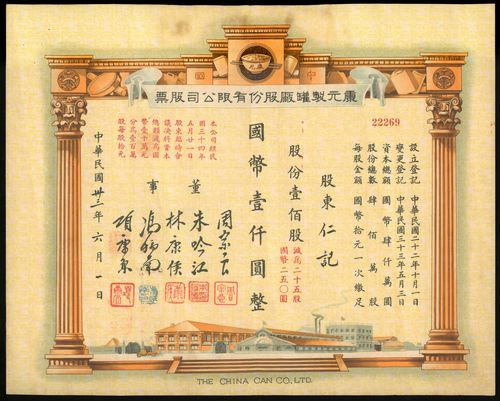 中國
康元製罐廠股份有限公司股票
22269
設立登記 中華民國二十二年十月一日
變更登記 中華民國三十三年五月三日
資本總額 國幣肆仟萬圓
股份總數 肆佰萬股
每股金額 國幣拾元一次繳足
股東仁記
股份壹佰股
減為二十五股
國幣二五〇圓
國幣壹仟圓整
本公司經民
國三十四年
五月廿一日
股東臨時會
議決將資本
總額減為國
幣壹千萬元
分為壹百萬
股每股拾元
董事
朱吟江
林康侯
馮炳南
中華民國卅三年六月一日
THE CHINA CAN CO., LTD.